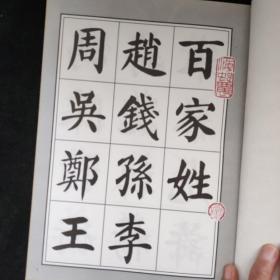 百家姓
趙錢孫李
周吳鄭王